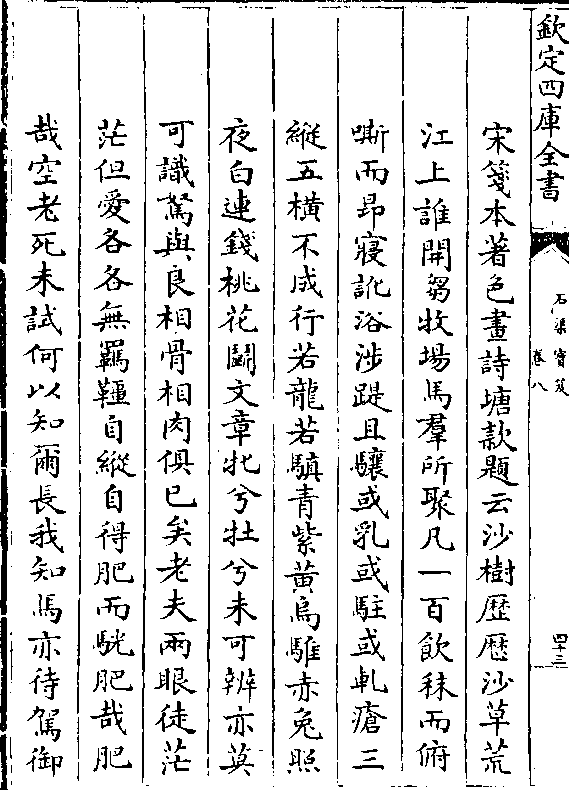 欽定四庫全書
石渠寳笈
卷八
四十三
宋箋本著色畫詩塘款題云沙樹歴歴沙草荒
江上誰開芻牧場馬羣所聚凡一百飲秣而俯
嘶而昻寢訛浴渉踶且驤或乳或駐或軋瘡三
縱五橫不成行若龍若騏青紫黃烏騅赤兔照
夜白連錢桃花鬬文章牝兮牡兮未可辨亦莫
可識駑與良相骨相肉俱已矣老夫兩眼徒茫
茫但愛各各無羈韁自縱自得肥而駫肥哉肥
哉空老死未試何以知爾長我知馬亦待駕御